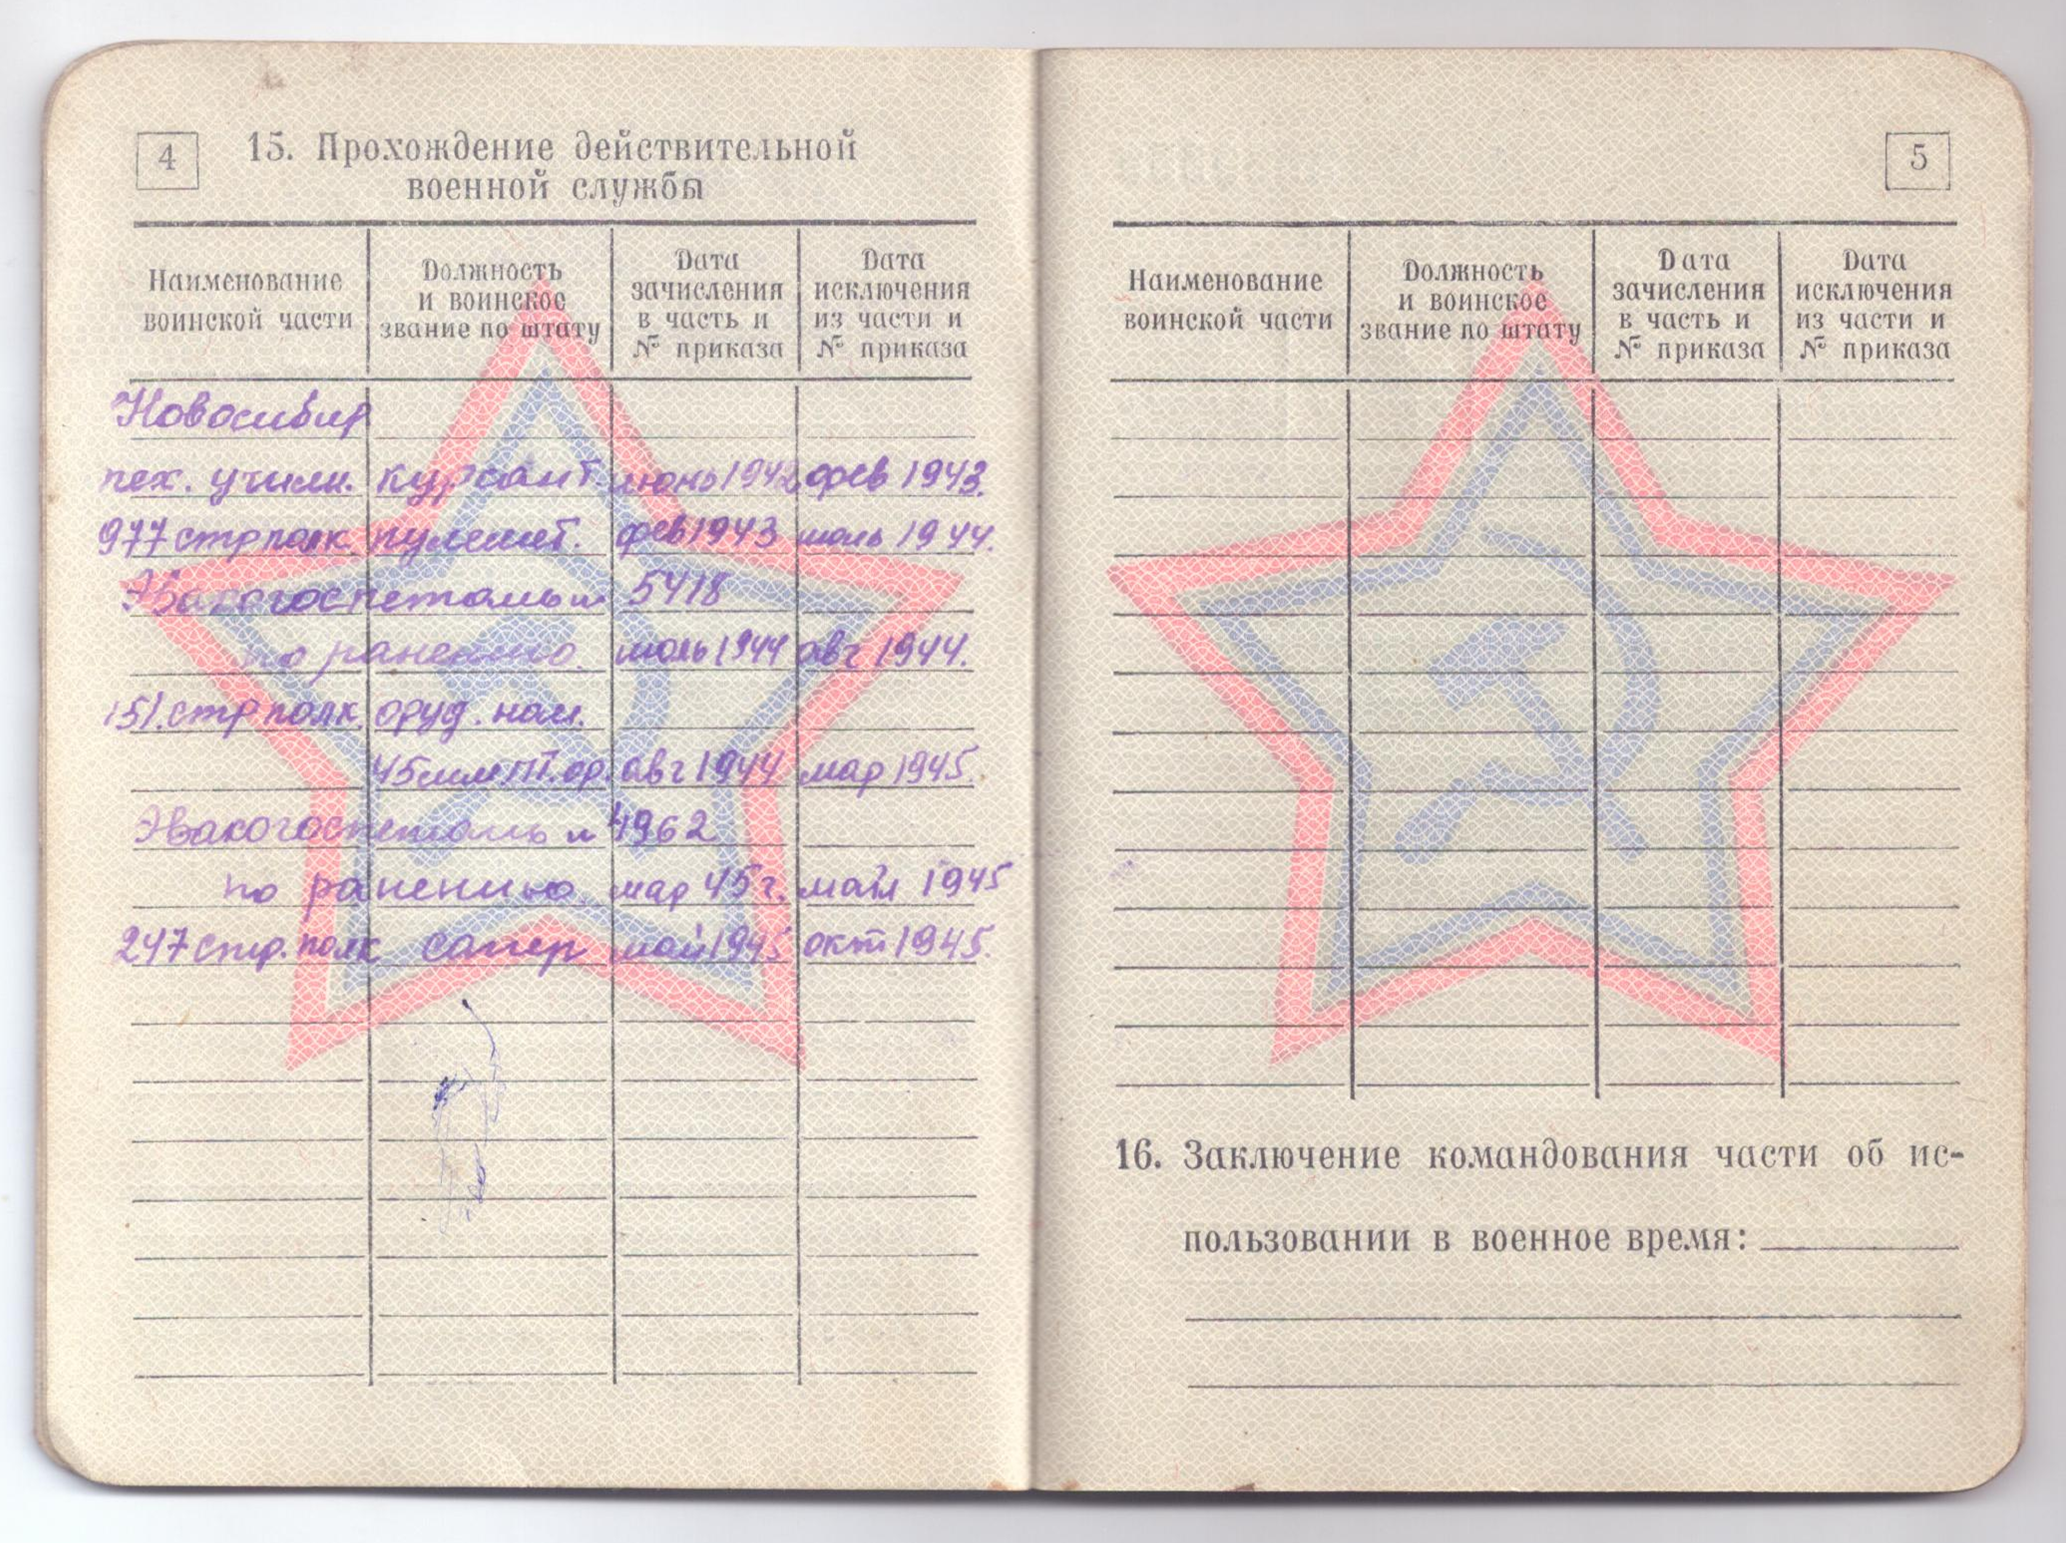 4
15. Прохождение действительной
военной службы
Наименование
воинской части
Должность
и воинское
звание по штату
Дата
зачисления
в часть и
№ приказа
Дата
исключения
из части и
№ приказа
Новосибир
пех. учили. курсант. июнь 1942 фев 1943.
977 стр полк. пулемет. фев 1943 июль 1944.
Эвакогоспеталь № 5418
по ранению. июль 1944 авг 1944.
151. стр полк. оруд. ном.
45 мм пт. ор. авг 1944 мар 1945.
Эвакогоспеталь № 4962
по ранению. мар 45 г. май 1945
247 стр. полк сапер май 1945 окт 1945.
5
Наименование
воинской части
Должность
и воинское
звание по штату
Дата
зачисления
в часть и
№ приказа
Дата
исключения
из части и
№ приказа
16. Заключение командования части об ис-
пользовании в военное время: